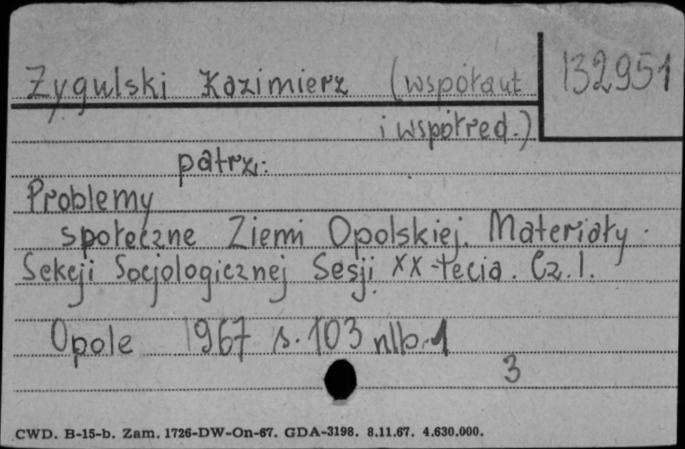 Zygulski Kazimierz (współaut 132951
i współred.)
patrz:
Problemy
społeczne Ziemi Opolskiej. Materiały.
Sekcji Socjologicznej Sesji XX-lecia. Cz. I.
Opole 1967 s. 103 nlb. 1
3
CWD. B-15-b. Zam. 1726-DW-On-67. GDA-3198. 8.11.67. 4.630.000.